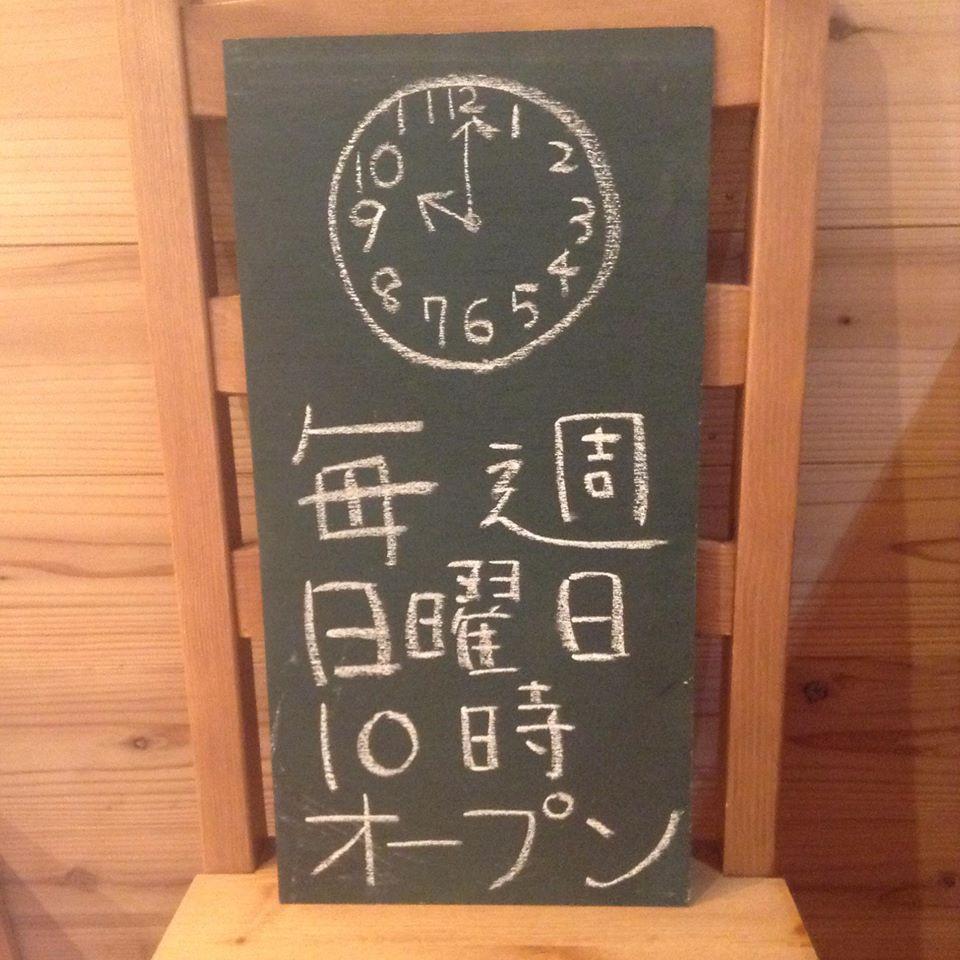 12
11 1
10 2
9 3
8 4
7 6 5
毎週
日曜日
10時
オープン